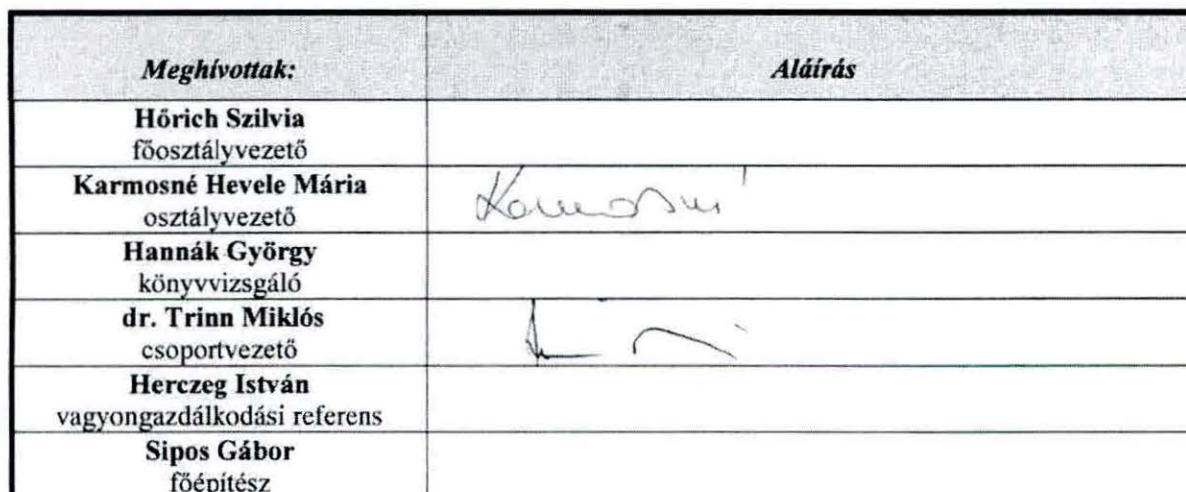 Meghívottak: Aláírás
Hőrich Szilvia
főosztályvezető
Karmosné Hevele Mária
osztályvezető
Karmosné
Hannák György
könyvvizsgáló
dr. Trinn Miklós
csoportvezető
Herczeg István
vagyongazdálkodási referens
Sipos Gábor
főépítész